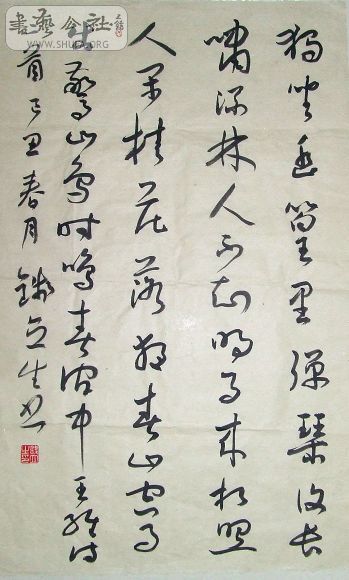 書藝公社
WWW.SHUFA.ORG
獨坐幽篁里彈琴復長
嘯深林人不知明月來相照
人閑桂花落春山空月
出驚山鳥時鳴春澗中王維詩
首己丑春月